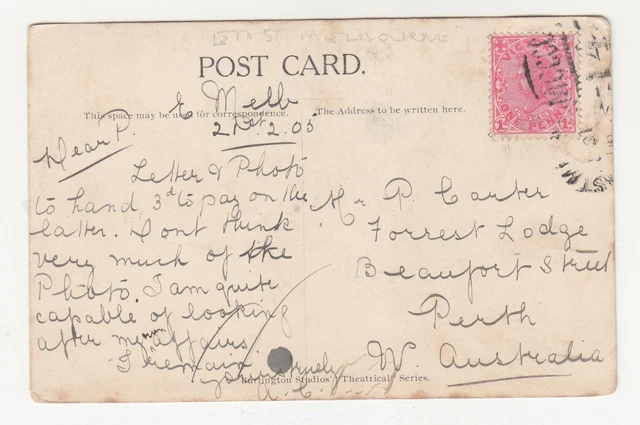 EAST MELBOURNE
POST CARD.
This space may be used for correspondence.
The Address to be written here.
E Melb
21st. 2. 05
Dear P.
Letter & Photo
to hand, 3d to pay on the
latter. Dont think
very much of the
Photo. I am quite
capable of looking
after my own affairs.
I remain
yours truly
A. C.
Mr P. Carter
Forrest Lodge
Beaufort Street
Perth
W. Australia
VICTORIA
ONE PENNY
Burlington Studios' Theatrical Series.